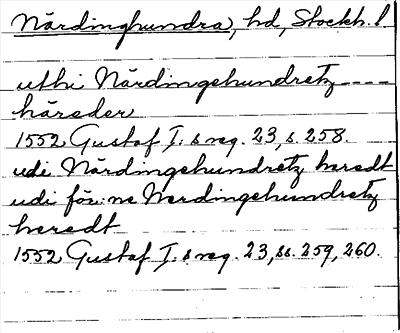 Närdinghundra, hd, Stockh. l.
uthi Närdingehundretz ----
häreder
1552 Gustaf I:s reg. 23, s. 258.
udi Närdingehundretz heredt
udi för:ne Nerdingehundretz
heredt
1552 Gustaf I:s reg. 23, ss. 259, 260.